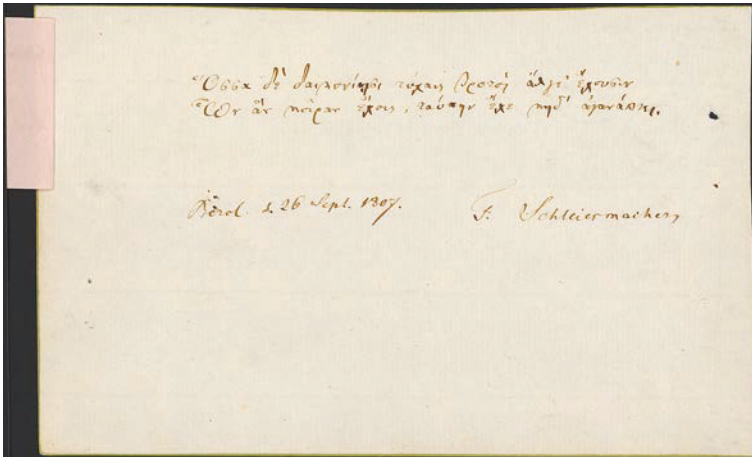 Ὅσσα δὲ δαιμονίῃσι τύχαις βροτοὶ ἄλγε' ἔχουσιν
Ὧν ἂν μοῖραν ἔχοις, ταύτην ἔχε μηδ' ἀγανάκτει.
Berl. d. 26 Sept. 1807.
F. Schleiermacher